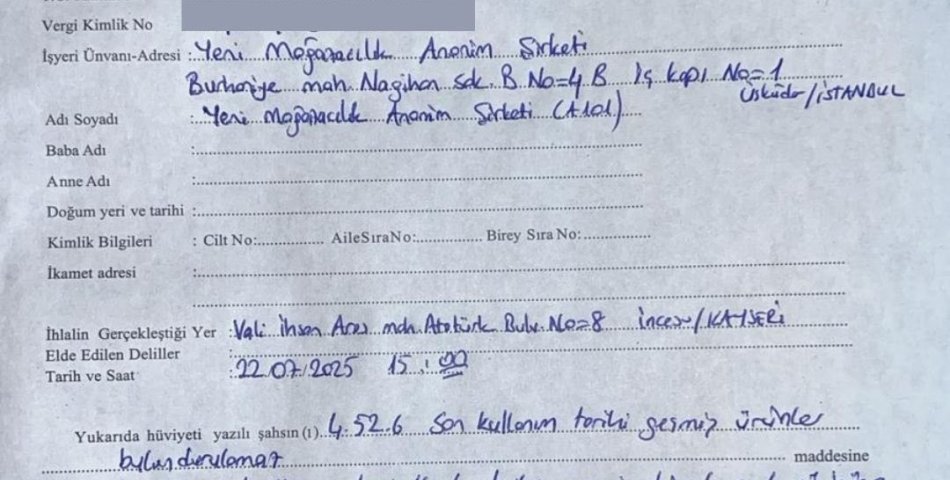 Vergi Kimlik No
İşyeri Ünvanı-Adresi : Yeni Mağazacılık Anonim Şirketi
Burhaniye mah. Nagihan sok. B. No=4 B İç kapı No=1
Üsküdar/İSTANBUL
Adı Soyadı : Yeni Mağazacılık Anonim Şirketi (A101)
Baba Adı :
Anne Adı :
Doğum yeri ve tarihi :
Kimlik Bilgileri : Cilt No:............ AileSıraNo:............ Birey Sıra No:............
İkamet adresi :
İhlalin Gerçekleştiği Yer : Vali İhsan Aras mah. Atatürk Bulv. No=8 İncesu/KAYSERİ
Elde Edilen Deliller :
Tarih ve Saat : 22.07/2025 15:00
Yukarıda hüviyeti yazılı şahsın (1) 4.52.6 Son kullanım tarihi geçmiş ürünler
bulundurulamaz maddesine